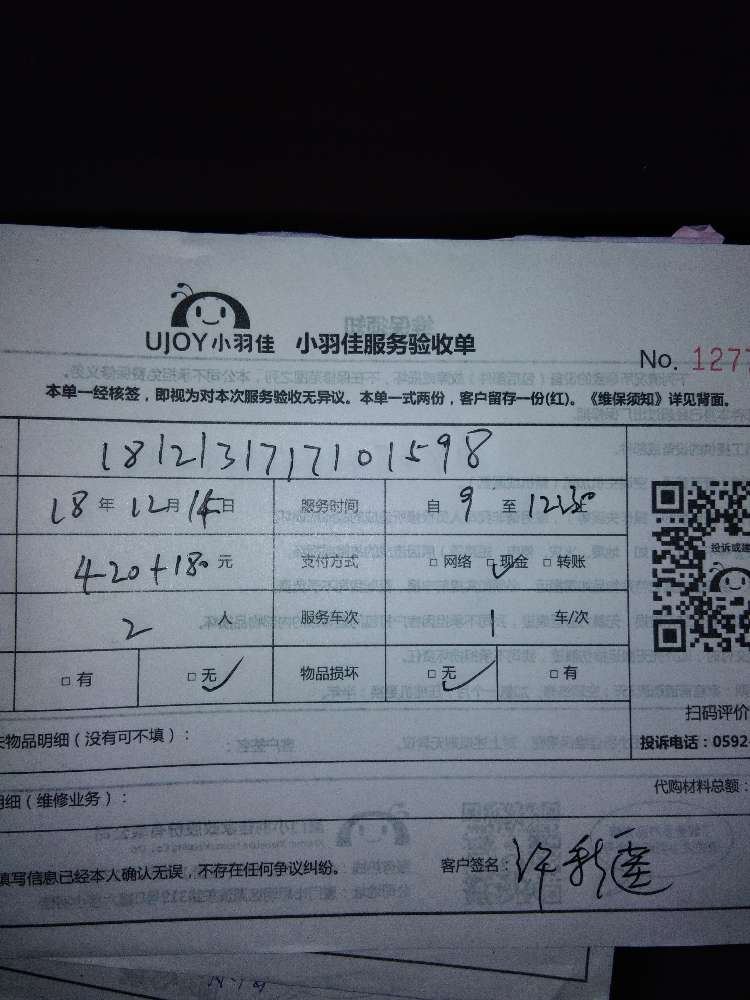 UJOY小羽佳 小羽佳服务验收单
No. 1277
本单一经核签，即视为对本次服务验收无异议。本单一式两份，客户留存一份(红)。《维保须知》详见背面。
1812131717101598
18年12月15日 服务时间 自9至12:30
420+180元 支付方式 □ 网络 □ 现金 □ 转账
投诉或建
2人 服务车次 1 车/次
□ 有 □ 无 物品损坏 □ 无 □ 有
扫码评价
物品明细（没有可不填）：
投诉电话：0592-
明细（维修业务）：
代购材料总额：
填写信息已经本人确认无误，不存在任何争议纠纷。 客户签名：